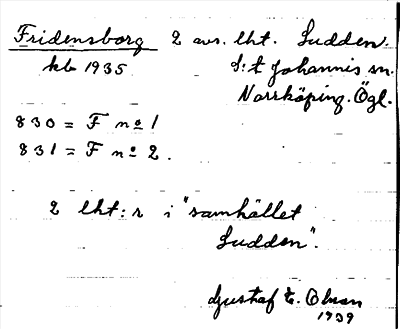 Fridensborg 2 avs. lht. Sudden.
kb 1935 S:t Johannis sn.
Norrköping. Ögl.
830 = F no 1
831 = F no 2.
2 lht:r i "samhället
Sudden".
Gustaf E. Olson
1939